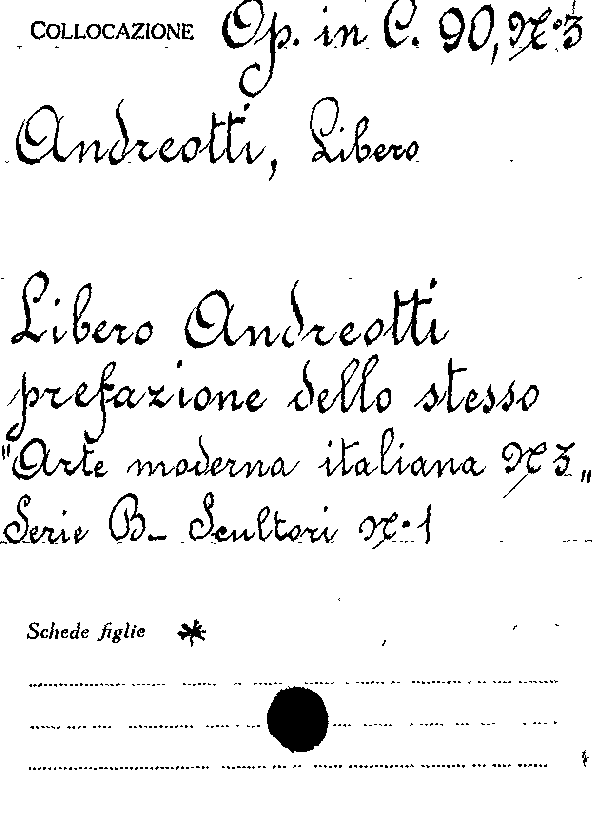 COLLOCAZIONE Op. in C. 90, N.º 3
Andreotti, Libero
Libero Andreotti
prefazione dello stesso
"Arte moderna italiana N 3„
Serie B_ Scultori N.º 1
Schede figlie *